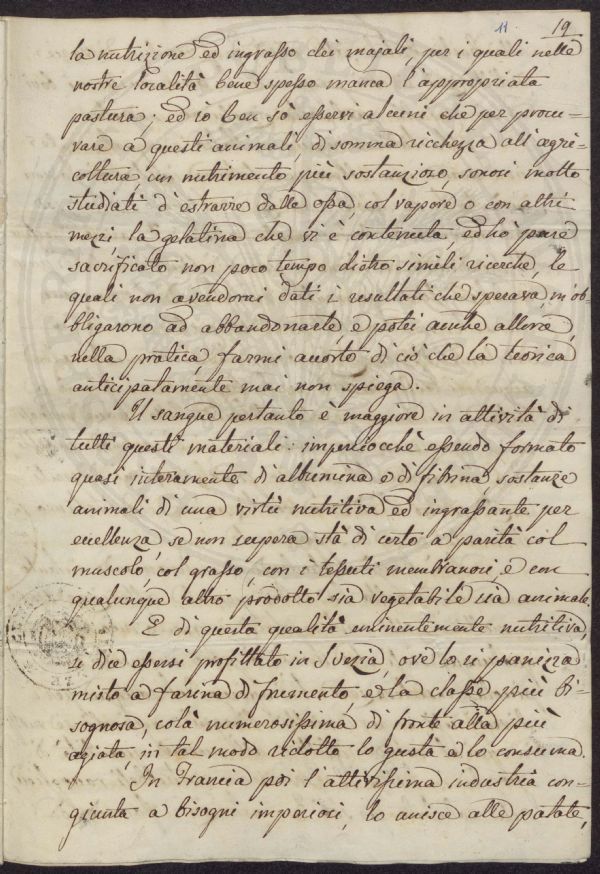 11 19
la nutrizione ed ingrasso dei majali, per i quali nelle
nostre località bene spesso manca l'appropriata
pastura; ed io ben sò esservi alcuni che per procu-
rare a questi animali, di somma ricchezza all'agri-
coltura, un nutrimento più sostanzioso, sonosi molto
studiati d'estrarre dalle ossa, col vapore o con altri
mezzi, la gelatina che vi è contenuta, ed hò pure
sacrificato non poco tempo dietro simili ricerche, le
quali non avendomi dati i resultati che sperava, m'ob-
bligarono ad abbandonarle e potei anche allora,
nella pratica, farmi accorto di ciò che la teorica
anticipatamente mai non spiega.
Il sangue pertanto è maggiore in attività di
tutti questi materiali: imperciocchè essendo formato
quasi interamente di albumina e di fibrina, sostanze
animali di una virtù nutritiva ed ingrassante per
eccellenza, se non supera stà di certo a parità col
muscolo, col grasso, con i tessuti membranosi, e con
qualunque altro prodotto sia vegetabile sia animale.
E di questa qualità eminentemente nutritiva,
si dice essersi profittato in Svezia, ove lo si panizza
misto a farina di frumento, e la classe più bi-
sognosa, colà numerosissima di fronte alla più
agiata, in tal modo ridotto lo gusta e lo consuma.
In Francia poi l'attivissima industria con-
giunta a bisogni imperiosi, lo unisce alle patate,